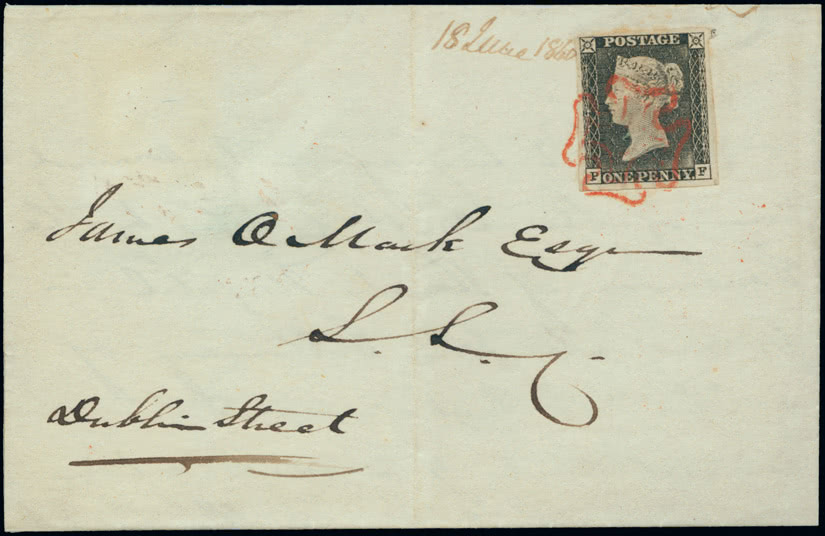 18 June 1840
POSTAGE
F ONE PENNY. F
James O Mack Esqr
S. S. C.
Dublin Street